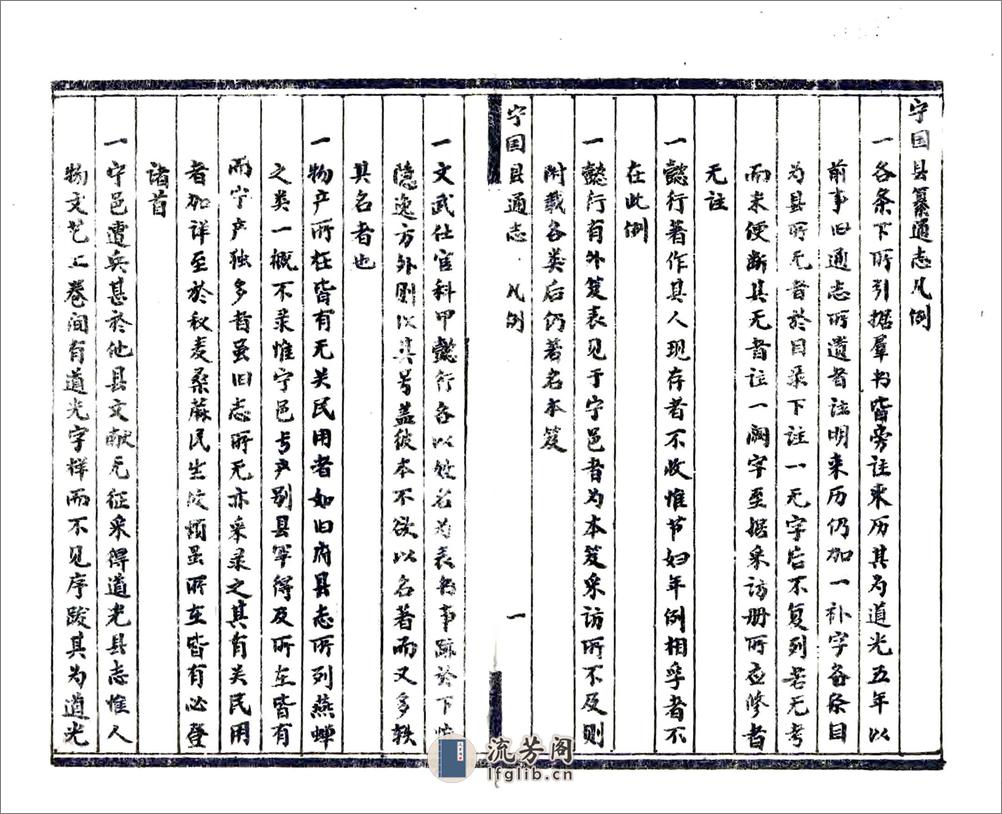 宁国县纂通志凡例
一各条下所引据群书皆旁注来历其为道光五年以
前事旧通志所遗者注明来历仍加一补字各条目
为县所无者於目录下注一无字后不复列若无考
而未便断其无者注一阙字至据采访册所应修者
无注
一懿行著作具人现存者不收惟节妇年例相孚者不
在此例
一懿行有外笈表见于宁邑者为本笈采访所不及则
附载各类后仍著名本笈
宁国县通志 凡例 一
一文武仕官科甲懿行各以姓名为表书事跡於下惟
隐逸方外则以其号盖彼本不欲以名著而又多轶
具名者也
一物产所在皆有无关民用者如旧府县志所列燕蝉
之类一概不录惟宁邑专产别县罕得及所在皆有
而宁产独多者虽旧志所无亦采录之其有关民用
者加详至於秋麦桑蔴民生攸赖虽所在皆有必登
诸首
一宁邑遭兵甚於他县文献无征采得道光县志惟人
物文艺上卷间有道光字样而不见序跋其为道光
流芳阁
lfglib.cn